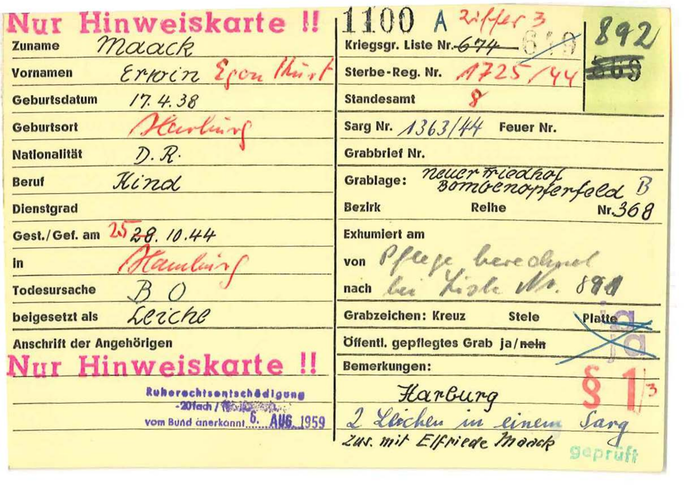 Nur Hinweiskarte !!
Zuname Maack
Vornamen Erwin Egon Kurt
Geburtsdatum 17.4.38
Geburtsort Harburg
Nationalität D.R.
Beruf Kind
Dienstgrad
Gest./Gef. am 25 28.10.44
in Hamburg
Todesursache B O
beigesetzt als Leiche
Anschrift der Angehörigen
Nur Hinweiskarte !!
Ruherechtsentschädigung
-20fach /
vom Bund anerkannt 6. AUG. 1959
1100 A Ziffer 3
Kriegsgr. Liste Nr. 674 649
892
869
Sterbe-Reg. Nr. 1725/44
Standesamt 8
Sarg Nr. 1363/44 Feuer Nr.
Grabbrief Nr.
Grablage: neuer Friedhof
Bombenopferfeld B
Bezirk Reihe Nr. 368
Exhumiert am
von Pflege berechnet
nach bei Liste Nr. 891
Grabzeichen: Kreuz Stele Platte ja
Öffentl. gepflegtes Grab ja/nein ja
Bemerkungen: § 1/3
Harburg
2 Leichen in einem Sarg
zus. mit Elfriede Maack
geprüft